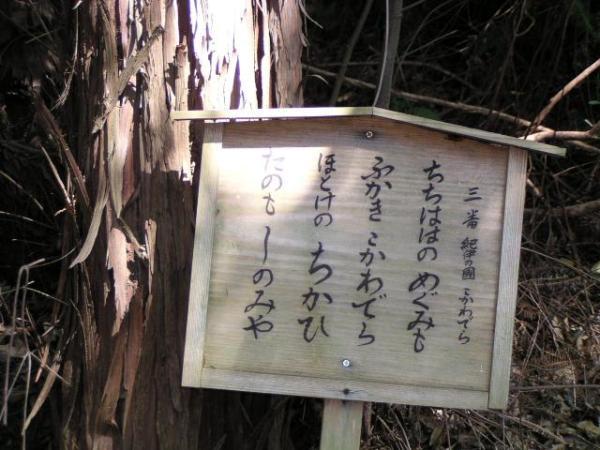 三番 紀伊の國 こかわでら
ちちははの めぐみも
ふかき こかわでら
ほとけの ちかひ
たのも しのみや